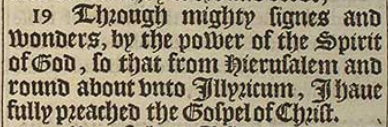 19 Through mighty signes and
wonders, by the power of the Spirit
of God, so that from Hierusalem and
round about vnto Illyricum, I haue
fully preached the Gospel of Christ.